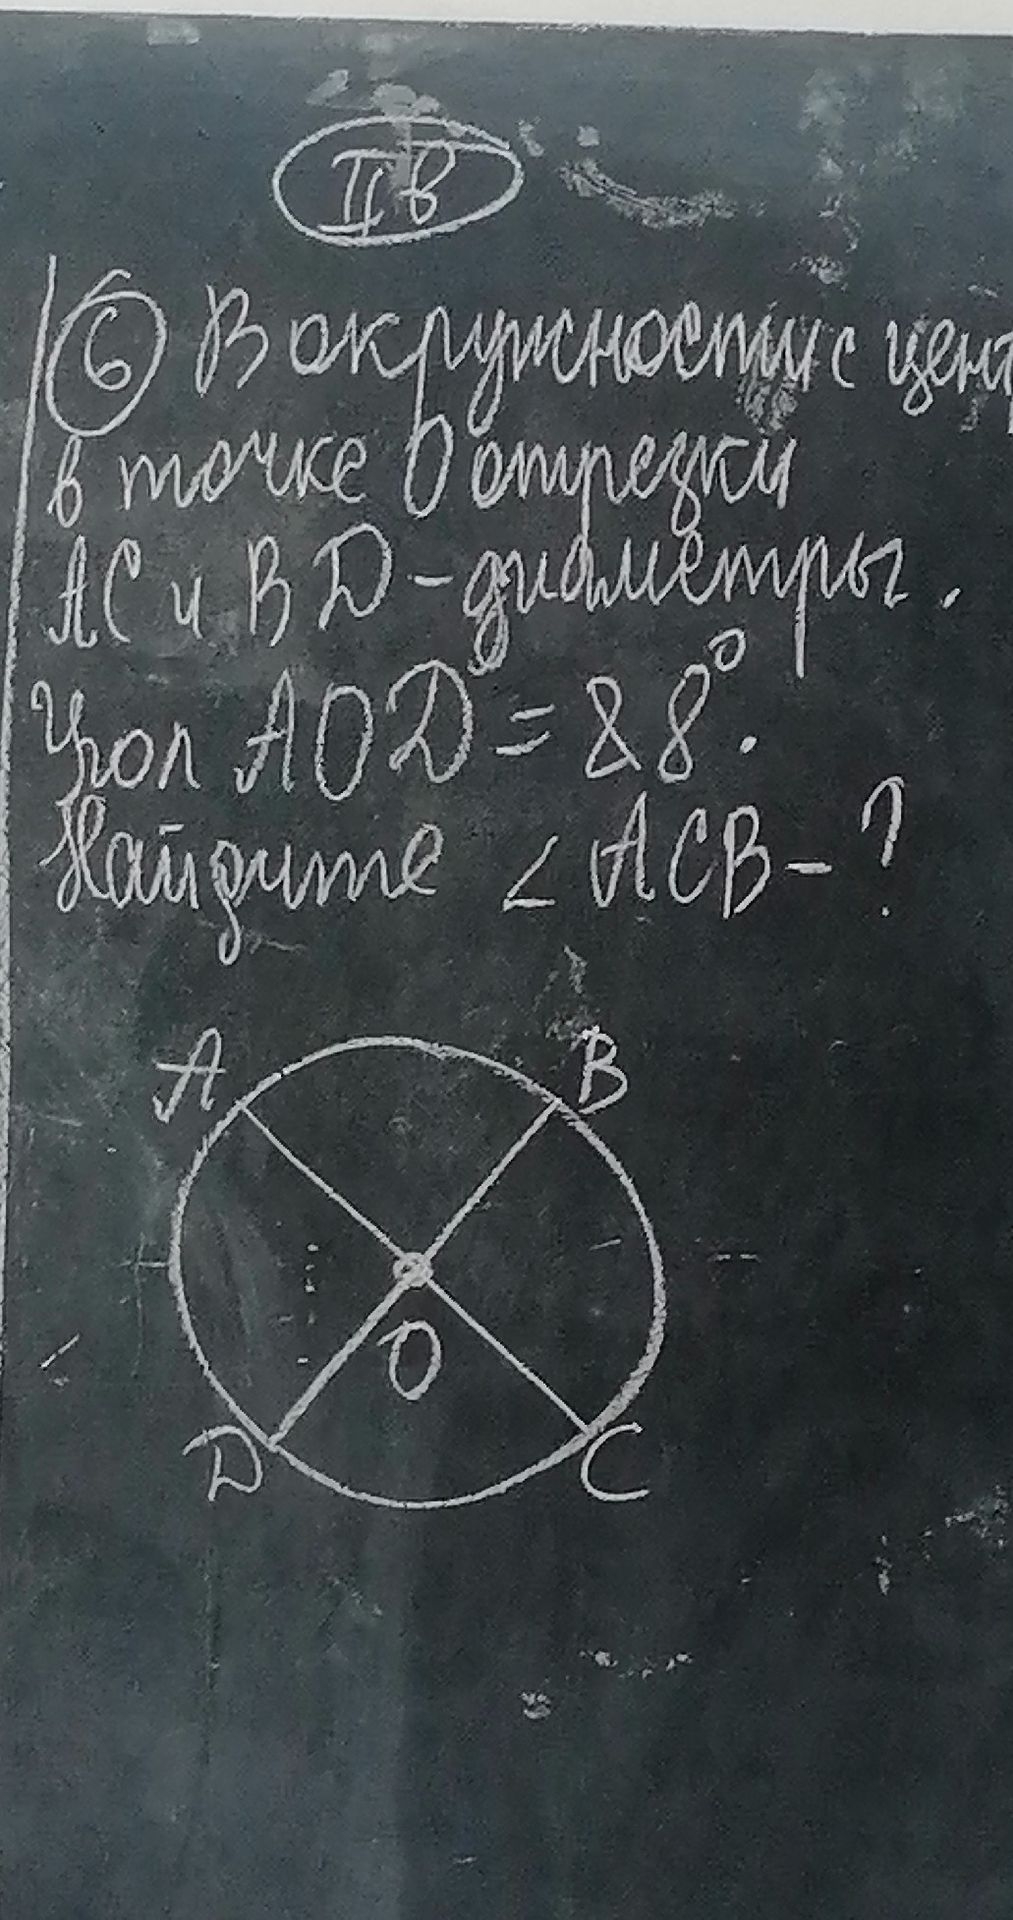 II в
6 В окружности с цент
в точке О отрезки
АС и ВD - диаметры.
Угол АОD = 88°.
Найдите ∠ АСВ - ?
А
В
О
D
С